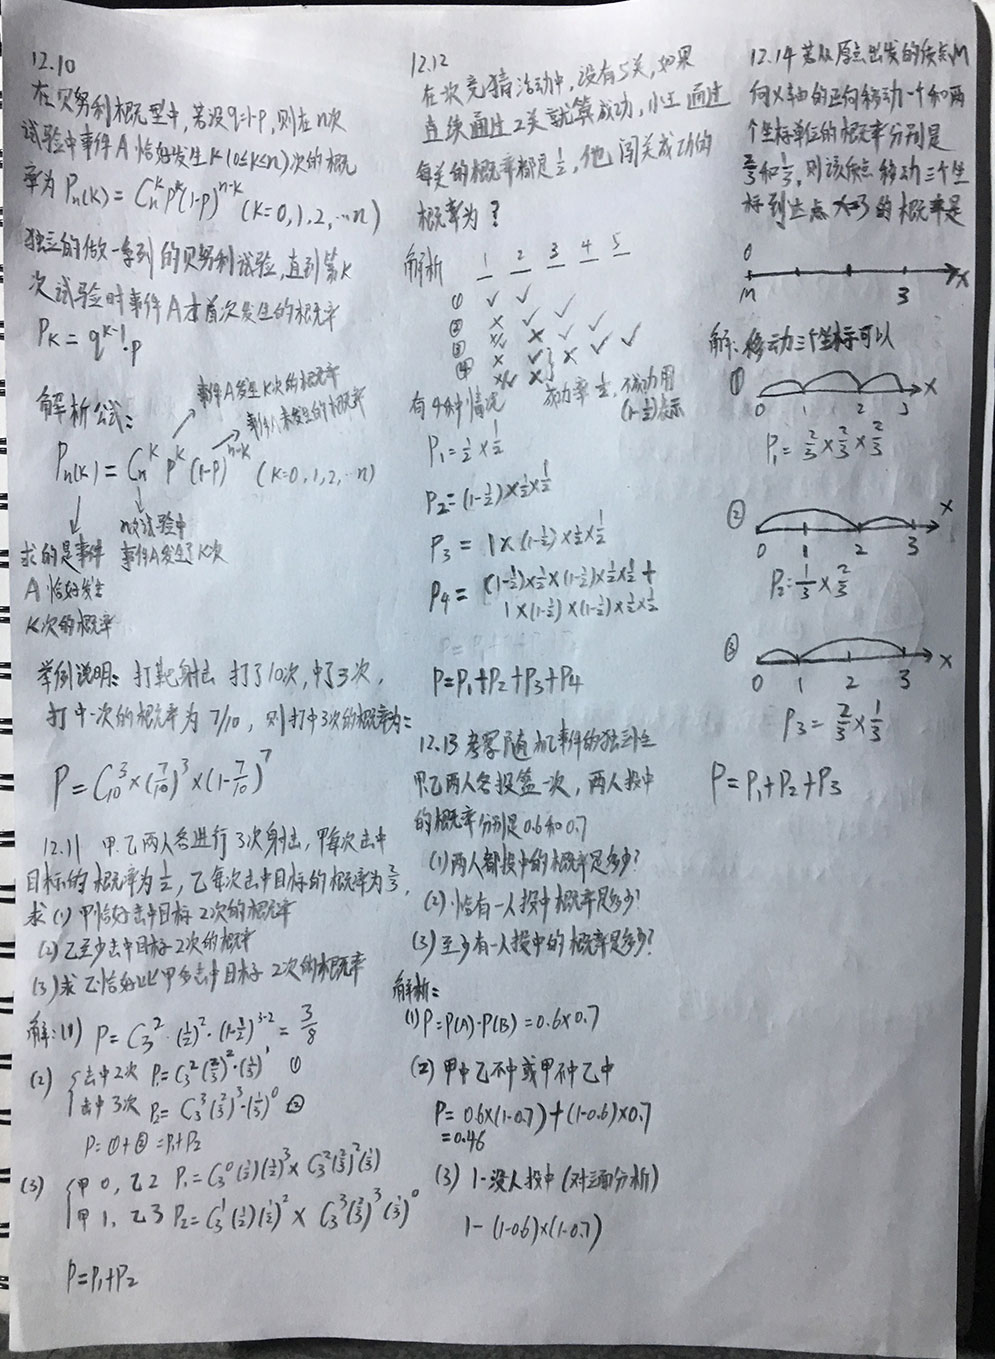 12.10
在贝努利概型中,若设q=1-p,则在n次
试验中事件A恰好发生K(0≤K≤n)次的概
率为 Pn(K) = Cₙᴷ pᴷ(1-p)ⁿ⁻ᴷ (K=0,1,2,…n)
独立的做一系列的贝努利试验,直到第K
次试验时事件A才首次发生的概率
Pᴋ = qᴷ⁻¹·p
解析公式:
事件A发生K次的概率
事件A未发生的概率
Pn(K) = Cₙᴷ pᴷ (1-p)ⁿ⁻ᴷ (K=0,1,2,…n)
求的是事件
A恰好发生
K次的概率
n次试验中
事件A发生了K次
举例说明: 打靶射击 打了10次,中了3次,
打中一次的概率为 7/10,则打中3次的概率为:
P = C₁₀³ × (7/10)³ × (1-7/10)⁷
12.11 甲.乙两人各进行3次射击,甲每次击中
目标的概率为1/2,乙每次击中目标的概率为2/3,
求(1)甲恰好击中目标2次的概率
(2)乙至少击中目标2次的概率
(3)求乙恰好比甲多击中目标2次的概率
解:(1) P = C₃²·(1/2)²·(1-1/2)³⁻² = 3/8
(2) 击中2次 P₁=C₃²(2/3)²·(1/3)¹ ①
击中3次 P₂=C₃³(2/3)³·(1/3)⁰ ②
P=①+②=P₁+P₂
(3) 甲0,乙2 P₁=C₃⁰(1/2)(1/2)³×C₃²(2/3)²(1/3)
甲1,乙3 P₂=C₃¹(1/2)(1/2)²×C₃³(2/3)³(1/3)⁰
P=P₁+P₂
12.12
在次竞猜活动中,设有5关,如果
连续通过2关就算成功,小王通过
每关的概率都是1/2,他闯关成功的
概率为?
解析 1 2 3 4 5
① ✓ ✓
② × ✓ ✓
③ × ✓ ✓
④ × ✓ × ✓ ✓
有4种情况 成功率1/2,不成功用
(1-1/2)表示
P₁=1/2×1/2
P₂=(1-1/2)×1/2×1/2
P₃=1×(1-1/2)×1/2×1/2
P₄=(1-1/2)×1/2×(1-1/2)×1/2×1/2+
1×(1-1/2)×(1-1/2)×1/2×1/2
P=P₁+P₂+P₃+P₄
12.13 考察随机事件的独立性
甲.乙两人各投篮一次,两人投中
的概率分别是0.6和0.7
(1)两人都投中的概率是多少?
(2)恰有一人投中概率是多少?
(3)至少有一人投中的概率是多少?
解析:
(1) P=P(A)·P(B)=0.6×0.7
(2) 甲中乙不中或甲不中乙中
P=0.6×(1-0.7)+(1-0.6)×0.7
=0.46
(3) 1-没人投中(对立面分析)
1-(1-0.6)×(1-0.7)
12.14 若从原点出发的质点M
向X轴的正向移动一个和两
个坐标单位的概率分别是
2/3和1/3,则该质点移动三个坐
标到达点X=3的概率是
0
M 3 X
解:移动三个坐标可以
① 0 1 2 3 X
P₁=2/3×2/3×2/3
② 0 1 2 3 X
P₂=1/3×2/3
③ 0 1 2 3 X
P₃=2/3×1/3
P=P₁+P₂+P₃